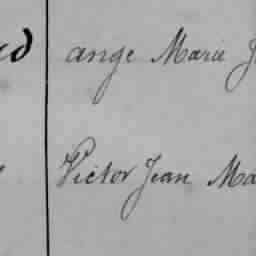 ange Marie
Victor Jean Ma